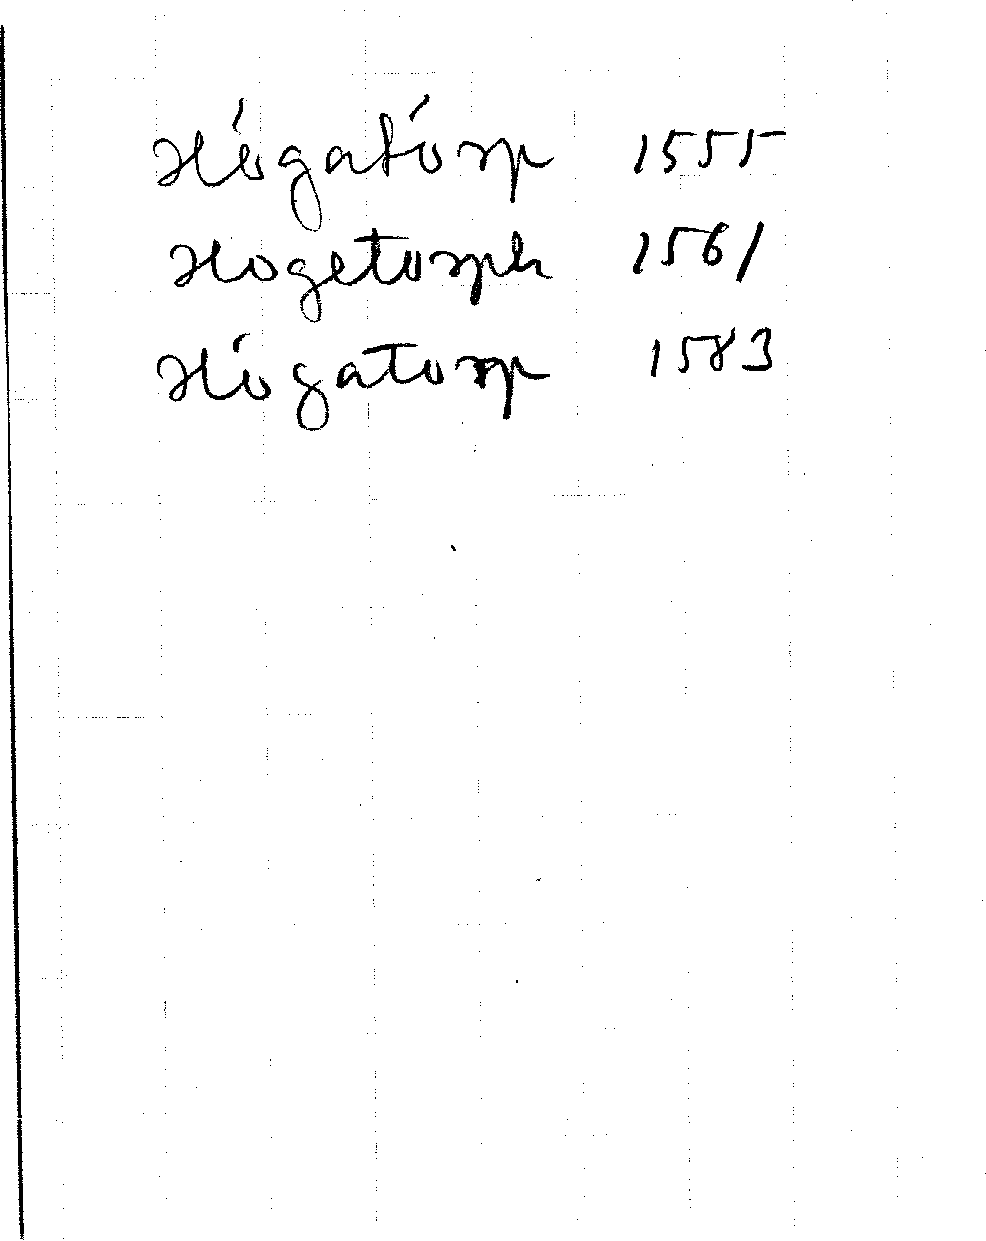 Hógatórp 1555
Hogetorph 1561
Hógatorp 1583